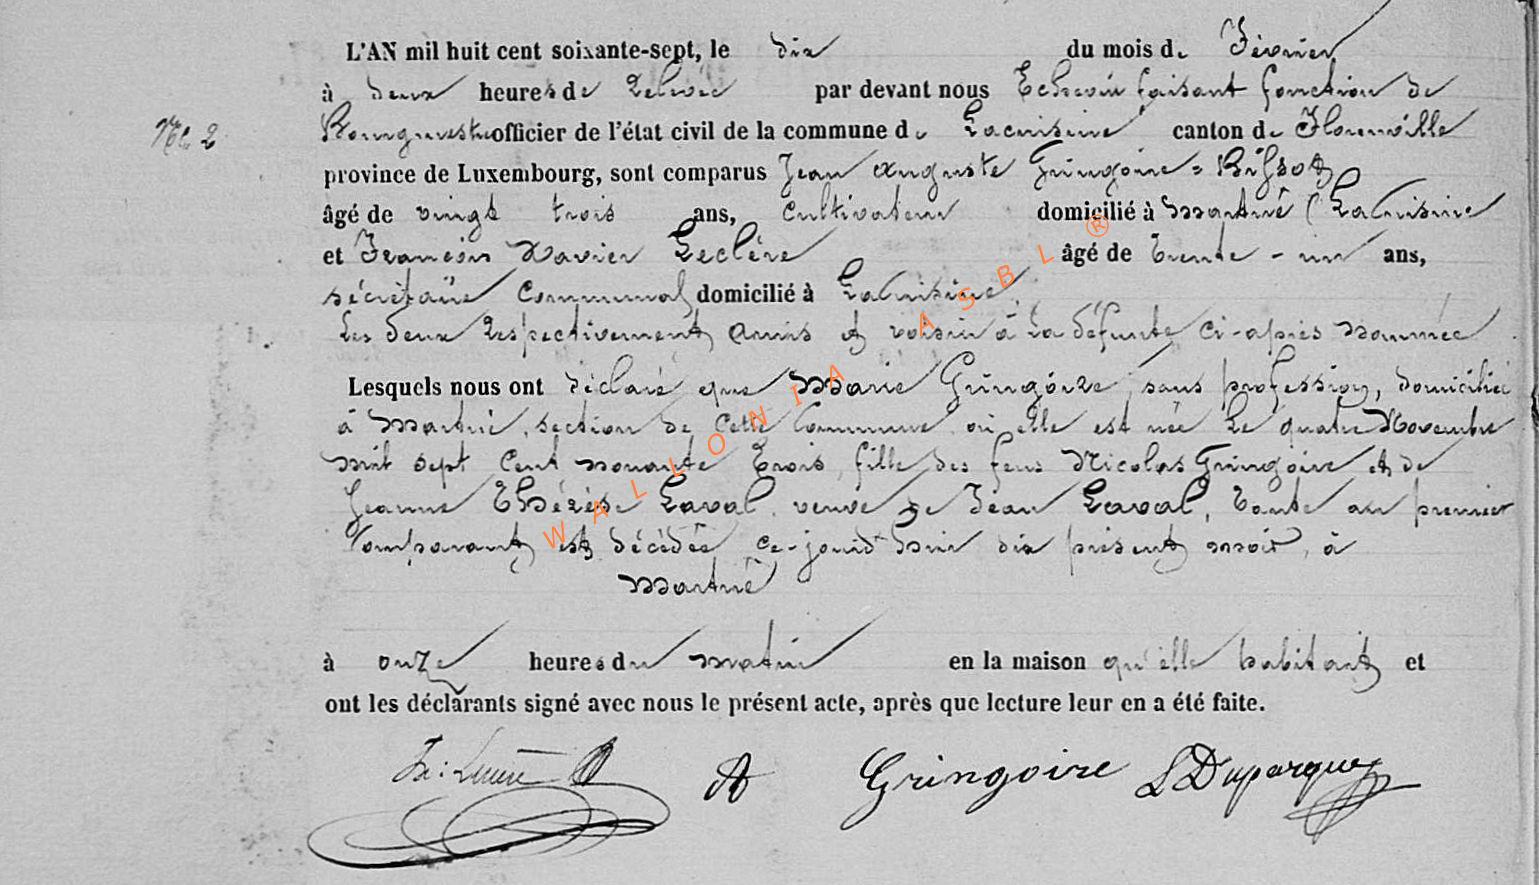 L'AN mil huit cent soixante-sept, le dix du mois de Février
à deux heures de Relevée par devant nous Echevin faisant fonction de
No 2 Bourgmestre officier de l'état civil de la commune de Lacuisine canton de Florenville
province de Luxembourg, sont comparus Jean Auguste Gringoire = Brisson
âgé de vingt trois ans, cultivateur domicilié à Martué (Lacuisine
et François Xavier Leclère âgé de trente-un ans,
sécrétaire communal domicilié à Lacuisine
Les deux Respectivement amis et voisin à la défunte ci-après nommée
Lesquels nous ont déclaré que Marie Gringoire, sans profession, domiciliée
à Martué, section de cette Commune où elle est née le quatre Novembre
mil sept cent nonante trois, fille des feus Nicolas Gringoire et de
Jeanne Thérèse Laval, veuve de Jean Laval, tante au premier
Comparant est décédée ce-jourd'hui dix présent mois, à
Martué
à onze heures du matin en la maison qu'elle habitait et
ont les déclarants signé avec nous le présent acte, après que lecture leur en a été faite.
A Gringoire L Duparque
WALLONIA ASBL ®